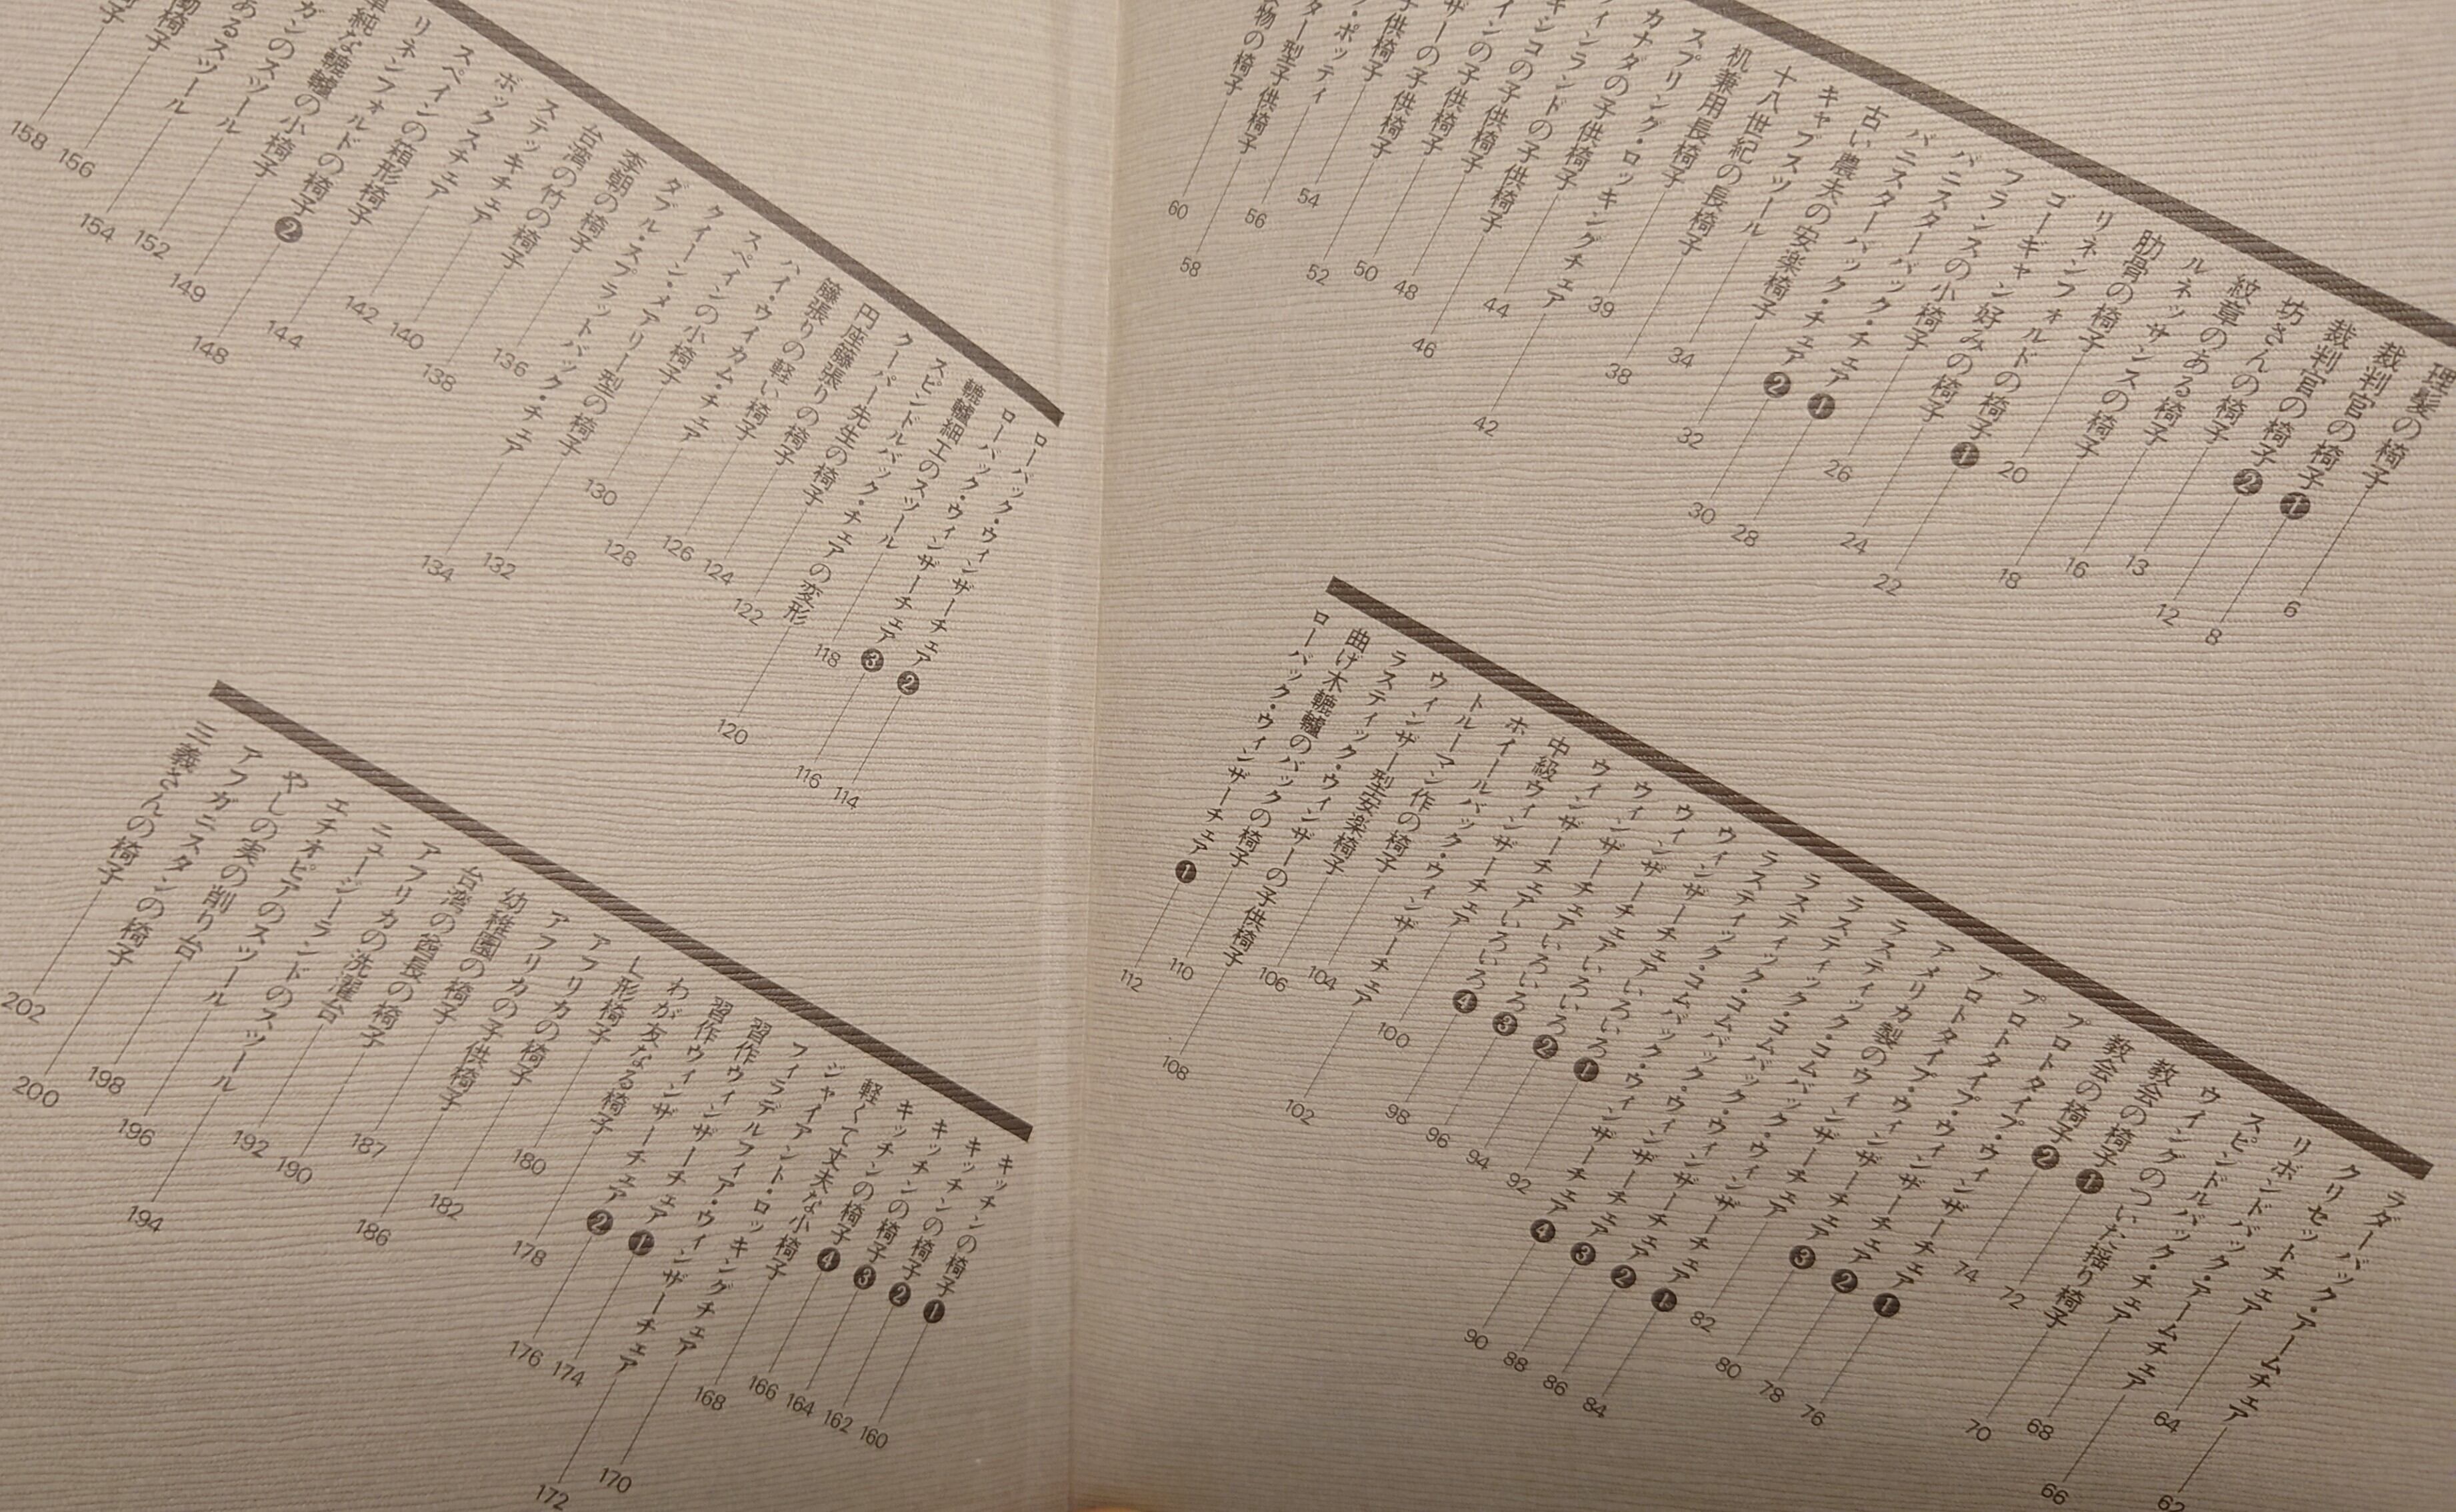 理髪の椅子 6
裁判官の椅子❶ 8
裁判官の椅子❷ 12
坊さんの椅子 13
紋章のある椅子 16
ルネッサンスの椅子 18
肋骨の椅子 20
リネンフォルドの椅子❶ 22
ゴーギャン好みの椅子 24
フランスの小椅子 26
バニスターバック・チェア❶ 28
バニスターバック・チェア❷ 30
古い農夫の安楽椅子 32
キャプスツール 34
十八世紀の長椅子 38
机兼用長椅子 39
スプリング・ロッキングチェア 42
カナダの子供椅子 44
ィンランドの子供椅子 46
キシコの子供椅子 48
インの子供椅子 50
ザーの子供椅子 52
子供椅子 54
・ポッティ 56
ター型子供椅子 58
物の椅子 60
ラダーバック・アームチェア 62
クリセットチェア 64
リボンドバック・アームチェア 66
スピンドルバック・チェア 68
ウイングのついた揺り椅子 70
教会の椅子❶ 72
教会の椅子❷ 74
プロトタイプ・ウィンザーチェア❶ 76
プロトタイプ・ウィンザーチェア❷ 78
プロトタイプ・ウィンザーチェア❸ 80
アメリカ製のウィンザーチェア 82
ラスティック・コムバック・ウィンザーチェア❶ 84
ラスティック・コムバック・ウィンザーチェア❷ 86
ラスティック・コムバック・ウィンザーチェア❸ 88
ラスティック・コムバック・ウィンザーチェア❹ 90
ウィンザーチェアいろいろ❶ 92
ウィンザーチェアいろいろ❷ 94
ウィンザーチェアいろいろ❸ 96
ウィンザーチェアいろいろ❹ 98
中級ウィンザーチェア 100
ホイールバック・ウィンザーチェア 102
トルーマン作の椅子 104
ウィンザー型安楽椅子 106
ラスティック・ウィンザーの子供椅子 108
曲げ木轆轤のバックの椅子 110
ローバック・ウィンザーチェア❶ 112
ローバック・ウィンザーチェア❷ 114
ローバック・ウィンザーチェア❸ 116
轆轤細工のスツール 118
スピンドルバック・チェアの変形 120
クーパー先生の椅子 122
円座籐張りの椅子 124
籐張りの軽い椅子 126
ハイ・ウイカム・チェア 128
スペインの小椅子 130
クイーン・メアリー型の椅子 132
ダブル・スプラットバック・チェア 134
李朝の椅子 136
台湾の竹の椅子 138
ステッキチェア 140
ボックスチェア 142
スペインの箱形椅子 144
リネンフォルドの椅子❷ 148
単純な轆轤の小椅子 149
ガンのスツール 152
あるスツール 154
椅子 156
子 158
キッチンの椅子❶ 160
キッチンの椅子❷ 162
キッチンの椅子❸ 164
キッチンの椅子❹ 166
軽くて丈夫な小椅子 168
ジャイアント・ロッキングチェア 170
フィラデルフィア・ウィンザーチェア 172
習作ウィンザーチェア❶ 174
習作ウィンザーチェア❷ 176
わが友なる椅子 178
L形椅子 180
アフリカの椅子 182
アフリカの子供椅子 186
幼稚園の椅子 187
台湾の酋長の椅子 190
アフリカの洗濯台 192
ニュージーランドのスツール 194
エチオピアのスツール 196
やしの実の削り台 198
アフガニスタンの椅子 200
三義さんの椅子 202